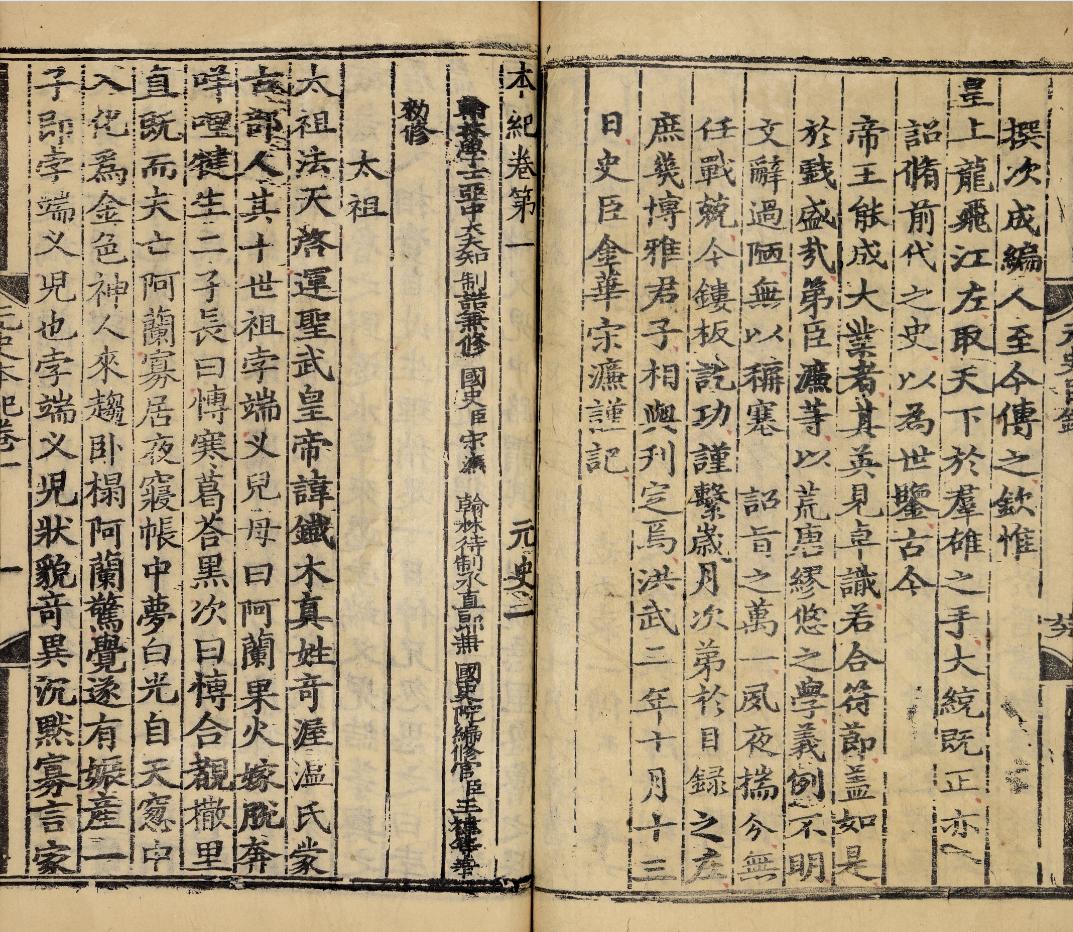 元史目錄
撰次成編人至今傳之欽惟
皇上龍飛江左取天下於羣雄之手大統旣正亦
詔脩前代之史以為世鑒古今
帝王能成大業者其英見卓識若合符節盖如是
於戱盛㢤第臣濂等以荒唐繆悠之學義例不明
文辭過陋無以稱塞 詔旨之萬一夙夜揣分無
任戰兢今鏤板訖功謹繫歲月次弟於目録之左
庶幾愽雅君子相與刊定焉洪武二年十月十三
日史臣金華宋濂謹記
本紀卷第一 元史一
翰林學士亞中大夫知制誥兼修國史臣宋濂 翰林待制承直郎兼國史院編修官臣王禕等奉
勑修
太祖
太祖法天啓運聖武皇帝諱鐵木真姓奇渥温氏蒙
古部人其十世祖孛端义兒母曰阿蘭果火嫁脫奔
咩哩犍生二子長曰愽寒葛荅黑次曰愽合覩撒里
直既而夫亡阿蘭寡居夜寢帳中夢白光自天窻中
入化爲金色神人來趨卧榻阿蘭驚覺遂有娠産一
子即孛端义児也孛端义児狀貌竒異沉默寡言家
元史本紀卷一
一